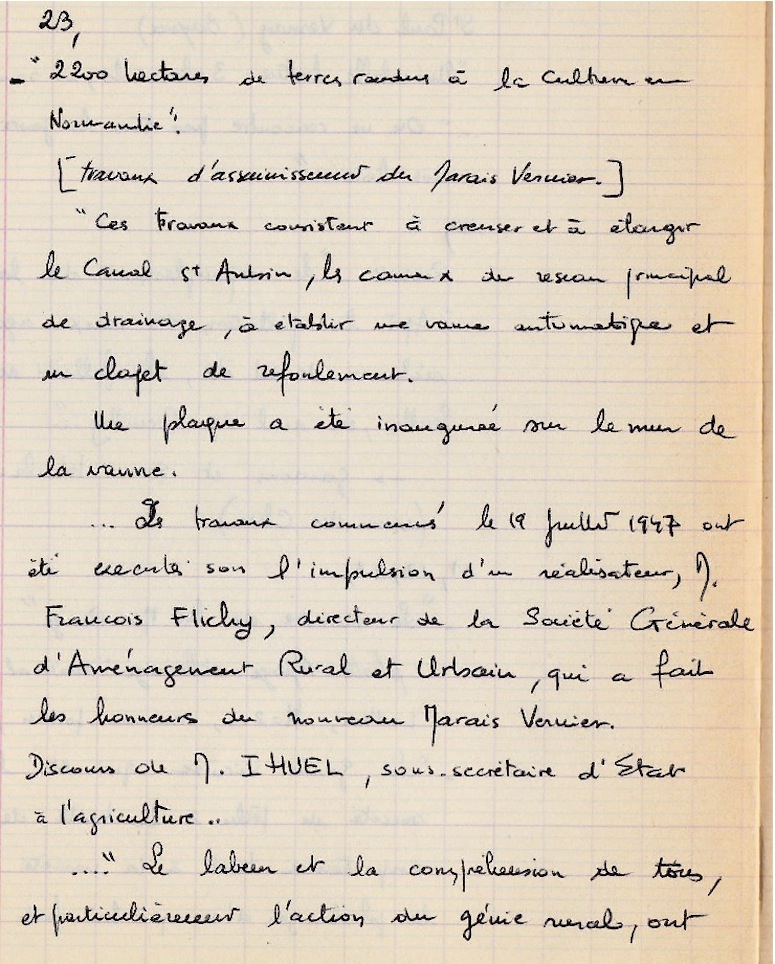 23,
-"2200 hectares de terres rendus à la culture en
Normandie".
[travaux d'assainissement du Marais Vernier.]
"Ces travaux consistent à creuser et à élargir
le Canal St Aubin, les canaux du reseau principal
de drainage, à etablir une vanne automatique et
un clapet de refoulement.
Une plaque a été inaugurée sur le mur de
la vanne.
... Les travaux commencés le 19 Juillet 1947 ont
été executés sous l'impulsion d'un réalisateur, M.
Francois Flichy, directeur de la Société Générale
d'Aménagement Rural et Urbain, qui a fait
les honneurs du nouveau Marais Vernier.
Discours de M. IHUEL, sous-secrétaire d'Etat
à l'agriculture..
...." Le labeur et la compréhension de tous,
et particulièrement l'action du génie rural, ont